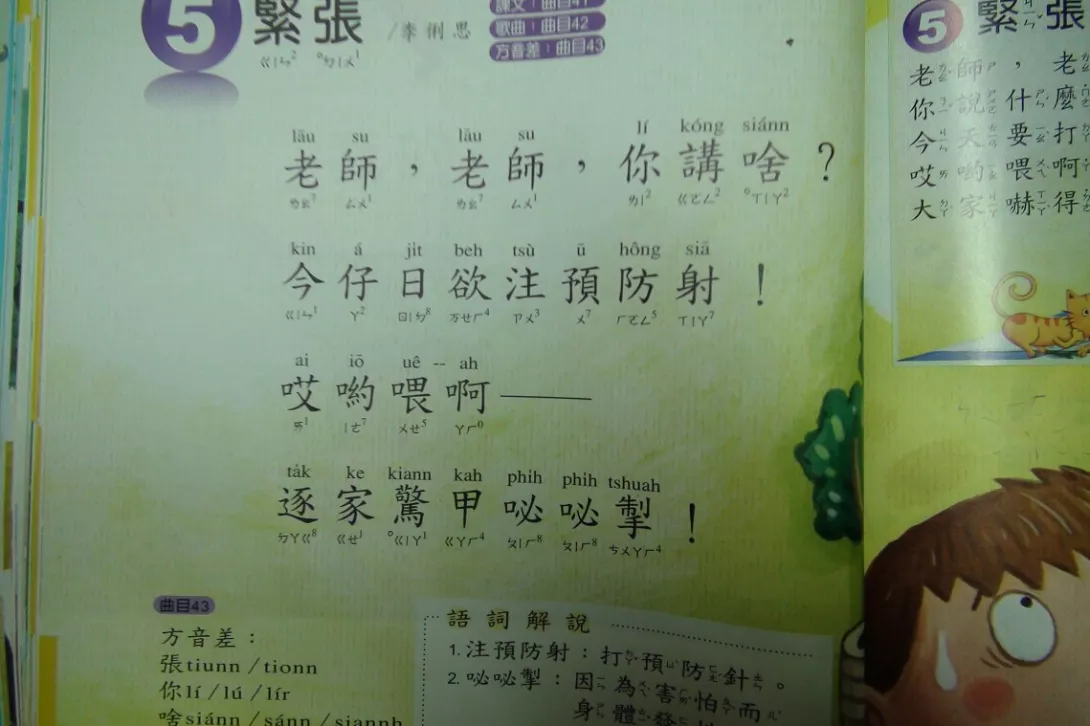 5 緊張 /李俐思
ㄍㄧㄣ2 ㄉㄧㄨ1
課文：曲目41
歌曲：曲目42
方音差：曲目43
lāu su lāu su lí kóng siánn
老師，老師，你講啥？
ㄌㄠ7 ㄙㄨ1 ㄌㄠ7 ㄙㄨ1 ㄌㄧ2 ㄍㄛㄥ2 ㄒㄧㄚ2
kin á ji̍t beh tsù ū hông siā
今仔日欲注預防射！
ㄍㄧㄣ1 ㄚ2 ㄖㄧㄉ8 ㄅㄝㄏ4 ㄗㄨ3 ㄨ7 ㄏㄛㄥ5 ㄒㄧㄚ7
ai iō uê -- ah
哎喲喂啊——
ㄞ1 ㄧㄜ7 ㄨㄝ5 ㄚㄏ0
ta̍k ke kiann kah phi̍h phi̍h tshuah
逐家驚甲咇咇掣！
ㄉㄚㄍ8 ㄍㄝ1 ㄍㄧㄚ1 ㄍㄚㄏ4 ㄆㄧㄏ8 ㄆㄧㄏ8 ㄘㄨㄚㄏ4
曲目43
方音差：
張tiunn / tionn
你lí / lú / lír
啥siánn / sánn / siannh
語詞解說
1. 注預防射：打預防針。
2. 咇咇掣：因為害怕而
身體發
5 緊張
老師，老
你說什麼
今天要打
哎喲喂啊
大家嚇得